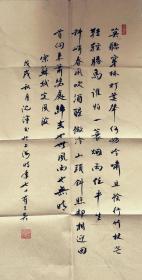 莫听穿林打叶声何妨吟啸且徐行竹杖芒
鞋轻胜马谁怕一蓑烟雨任平生
料峭春风吹酒醒微冷山头斜照却相迎回
首向来萧瑟处归去也无风雨也无晴
宋苏轼定风波
戊戌秋月沈泽